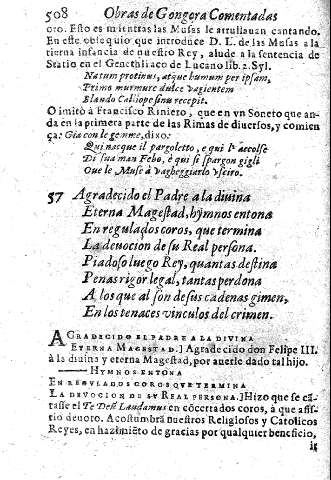 508 Obras de Gongora Comentadas
oro. Esto es mientras las Musas le arrullauan cantando.
En este obsequio que introduce D. L. de las Musas a la
tierna infancia de nuestro Rey, alude a la sentencia de
Statio en el Genethliaco de Lucano lib. 2. Syl.
Natum protinus, atque humum per ipsam,
Primo murmure dulce vagientem
Blando Calliope sinu recepit.
O imitò à Francisco Riniero, que en vn Soneto que an-
da en la primera parte de las Rimas de diuersos, y comien
ça: Gia con le gemme, dixo.
Qui nacque il pargoletto, e qui l' accolse
Di sua man Febo, è qui si spargon gigli
Oue le Muse à vagheggiarlo vsciro.
37 Agradecido el Padre a la diuina
Eterna Magestad, hymnos entona
En regulados coros, que termina
La deuocion de su Real persona.
Piadoso luego Rey, quantas destina
Penas rigor legal, tantas perdona
A los que al son de sus cadenas gimen,
En los tenaces vinculos del crimen.
AGRADECIDO EL PADRE A LA DIVINA
ETERNA MAGESTAD.] Agradecido don Felipe III.
à la diuina y eterna Magestad, por auerle dado tal hijo.
HYMNOS ENTONA
EN REGVLADOS COROS QVE TERMINA
LA DEVOCION DE SV REAL PERSONA.] Hizo que se cã-
tasse el Te Deũ Laudamus en cõcertados coros, à que assis-
tio deuoto. Acostumbrã nuestros Religiosos y Catolicos
Reyes, en hazimiẽto de gracias por qualquier beneficio,